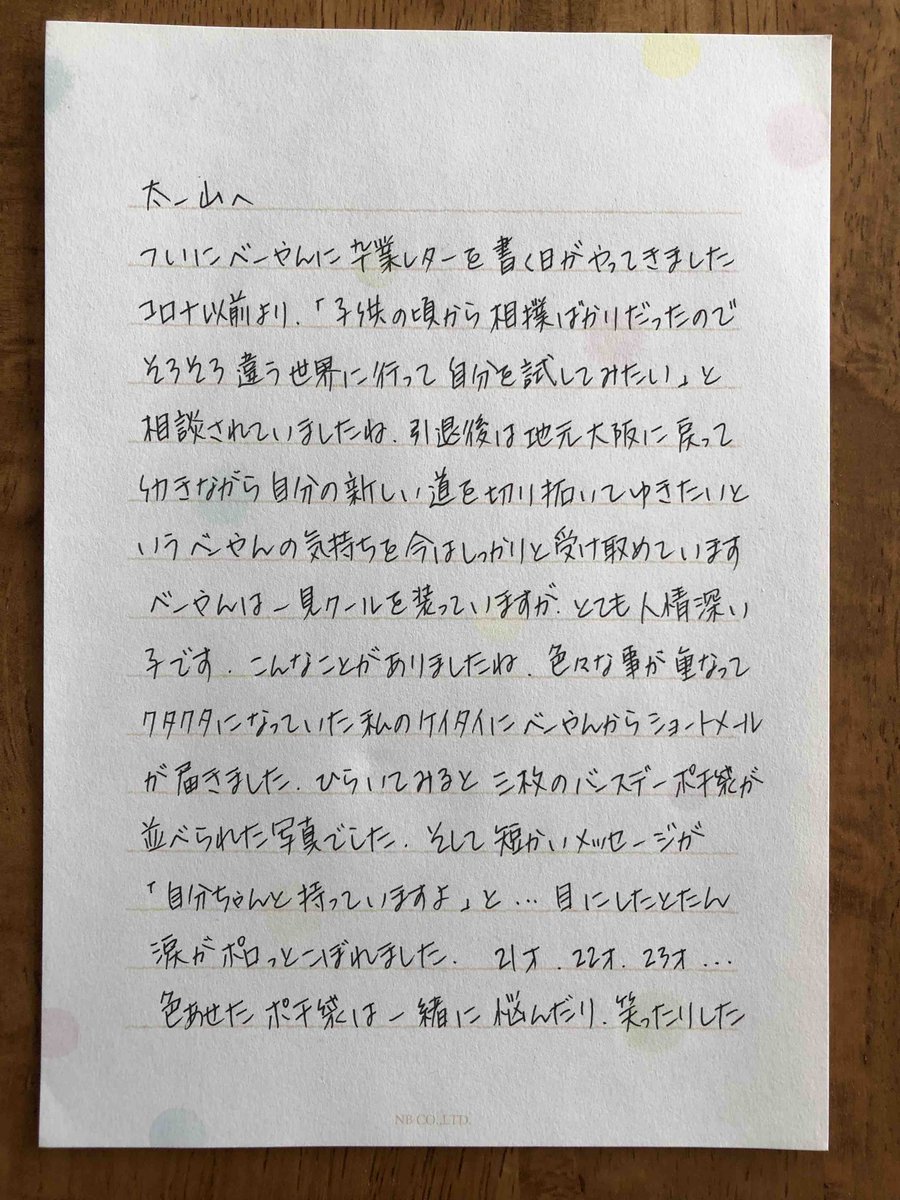 太一山へ
ついにべーやんに卒業レターを書く日がやってきました
コロナ以前より、「子供の頃から相撲ばかりだったので
そろそろ違う世界に行って自分を試してみたい」と
相談されていましたね、引退後は地元大阪に戻って
働きながら自分の新しい道を切り拓いてゆきたいと
いうべーやんの気持ちを今はしっかりと受け取めています
べーやんは一見クールを装っていますが、とても人情深い
子です．こんなことがありましたね、色々な事が重なって
クタクタになっていた私のケイタイにべーやんからショートメール
が届きました．ひらいてみると三枚のバースデーポチ袋が
並べられた写真でした．そして短かいメッセージが
「自分ちゃんと持っていますよ」と…目にしたとたん
涙がポロっとこぼれました．21才．22才．23才…
色あせたポチ袋は一緒に悩んだり、笑ったりした
NB CO.,LTD.